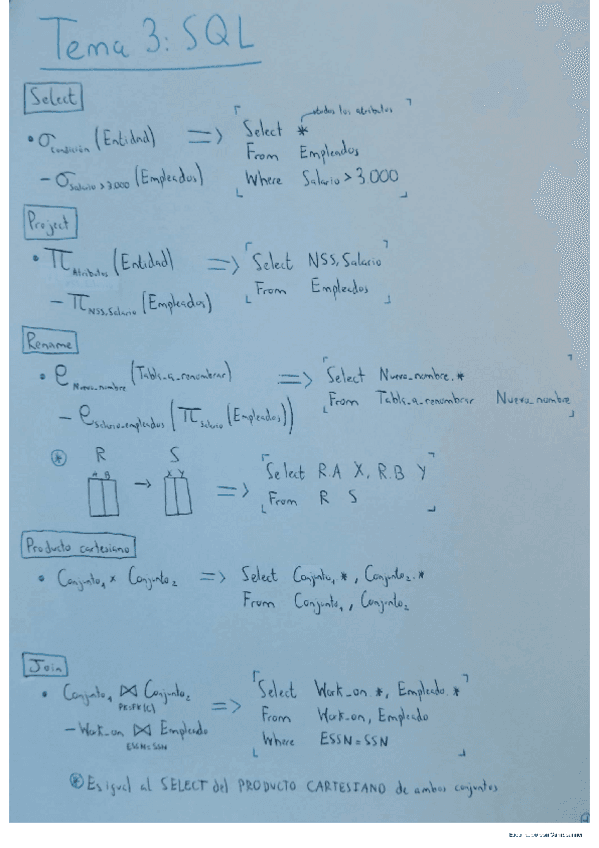 Tema 3: SQL
Select
todos los atributos
• σcondición (Entidad) => Select *
From Empleados
– σSalario > 3.000 (Empleados) Where Salario > 3.000
Project
• πAtributos (Entidad) => Select NSS, Salario
From Empleados
– πNSS, Salario (Empleados)
Rename
• ρNuevo_nombre (Tabla_a_renombrar) => Select Nuevo_nombre.*
From Tabla_a_renombrar Nuevo_nombre
– ρSalario_empleados (πSalario (Empleados))
* R S
A B X Y
→ => Select R.A X, R.B Y
From R S
Producto cartesiano
• Conjunto1 × Conjunto2 => Select Conjunto1.*, Conjunto2.*
From Conjunto1, Conjunto2
Join
• Conjunto1 ⋈ Conjunto2 => Select Work_on *, Empleado.*
PK=FK(C)
From Work_on, Empleado
– Work_on ⋈ Empleado
ESSN=SSN
Where ESSN=SSN
* Es igual al SELECT del PRODUCTO CARTESIANO de ambos conjuntos